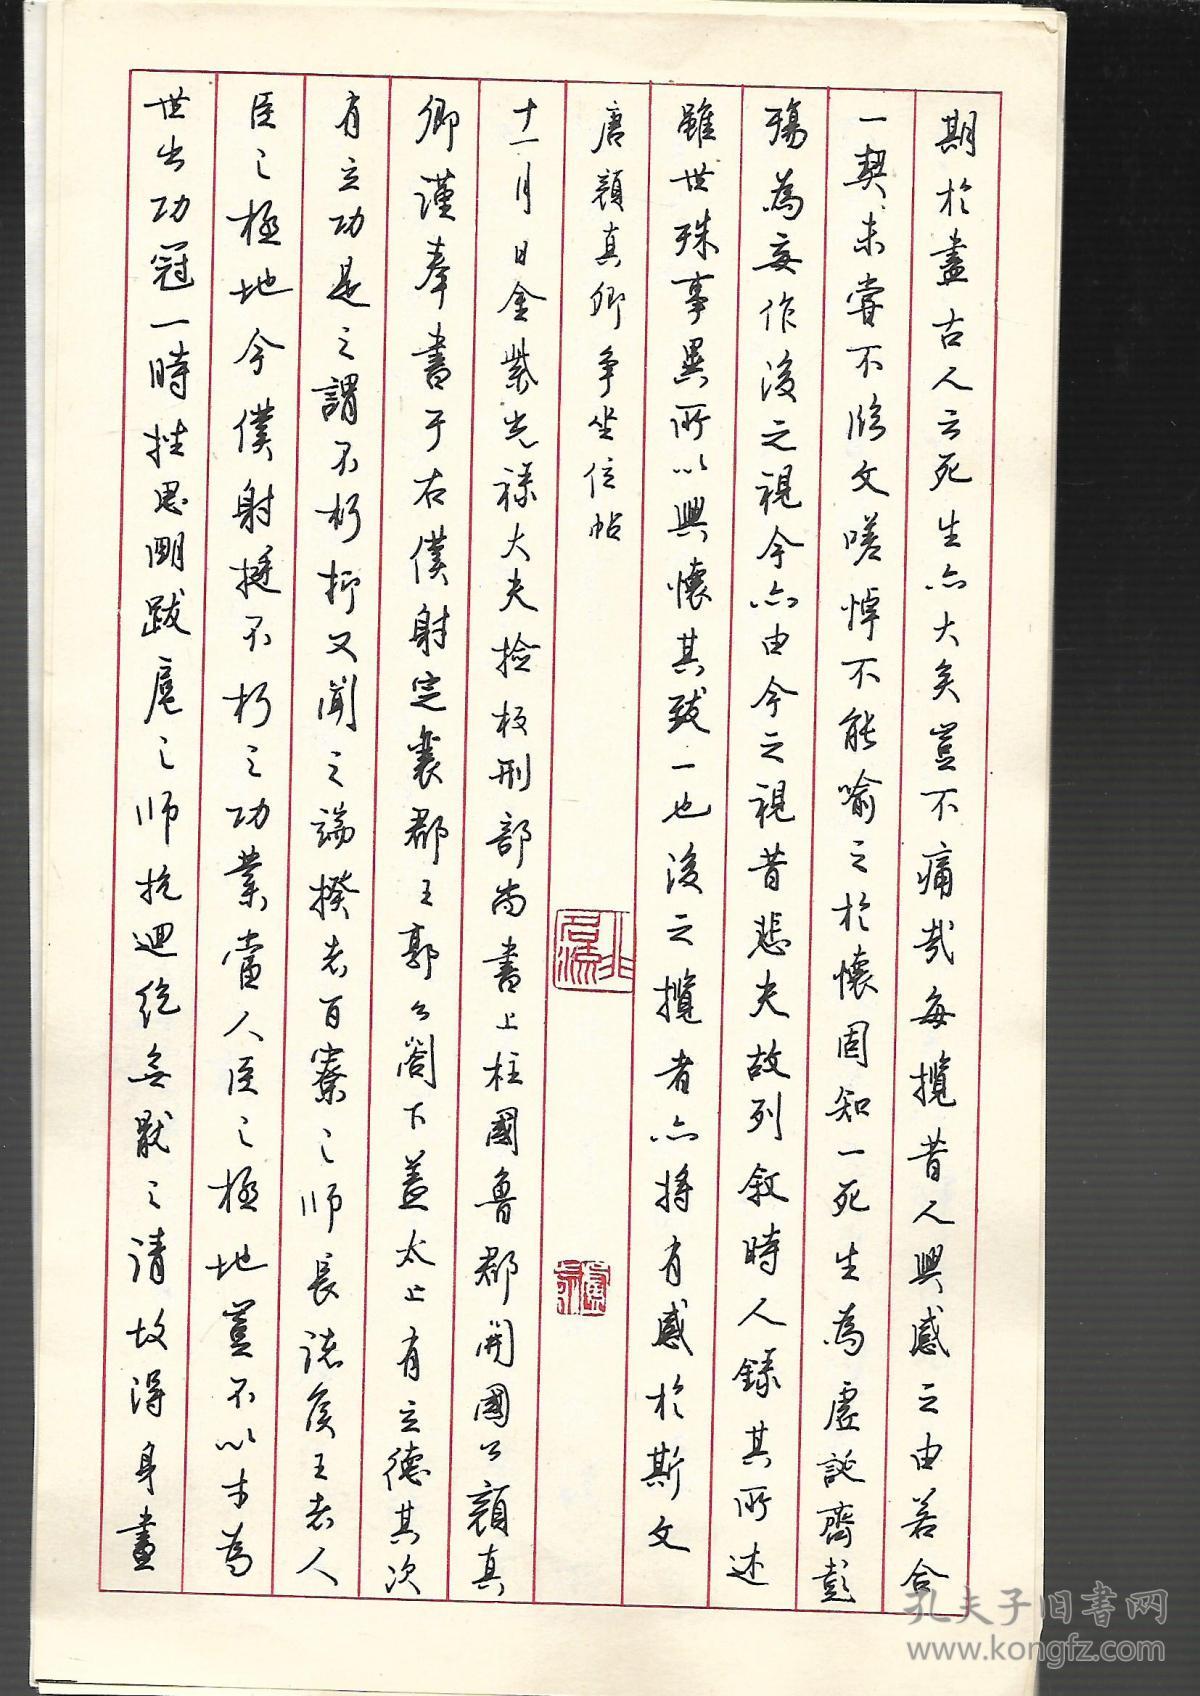 期於盡古人云死生亦大矣豈不痛哉每攬昔人興感之由若合
一契未嘗不臨文嗟悼不能喻之於懷固知一死生為虛誕齊彭
殤為妄作後之視今亦由今之視昔悲夫故列敘時人錄其所述
雖世殊事異所以興懷其致一也後之攬者亦將有感於斯文
唐顏真卿爭坐位帖
十一月日金紫光祿大夫檢校刑部尚書上柱國魯郡開國公顏真
卿謹奉書于右僕射定襄郡王郭公閤下蓋太上有立德其次
有立功是之謂不朽抑又聞之端揆者百寮之師長諸侯王者人
臣之極地今僕射挺不朽之功業當人臣之極地豈不以才為
世出功冠一時挫思明跋扈之師抗迴紇無厭之請故得身畫
孔夫子旧書网
www.kongfz.com